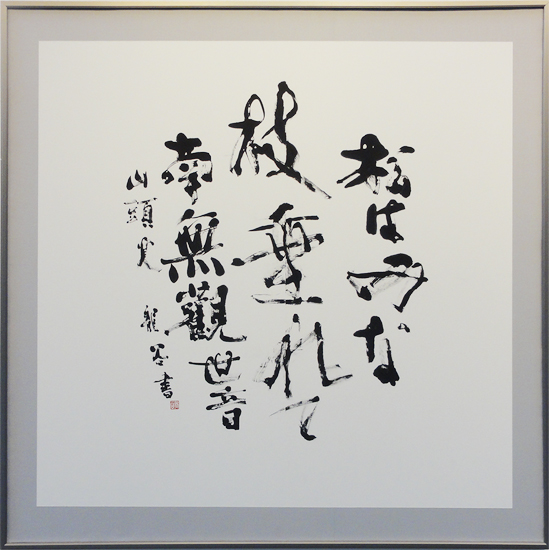 松はみな
枝垂れて
南無観世音
山頭火
龍谷書